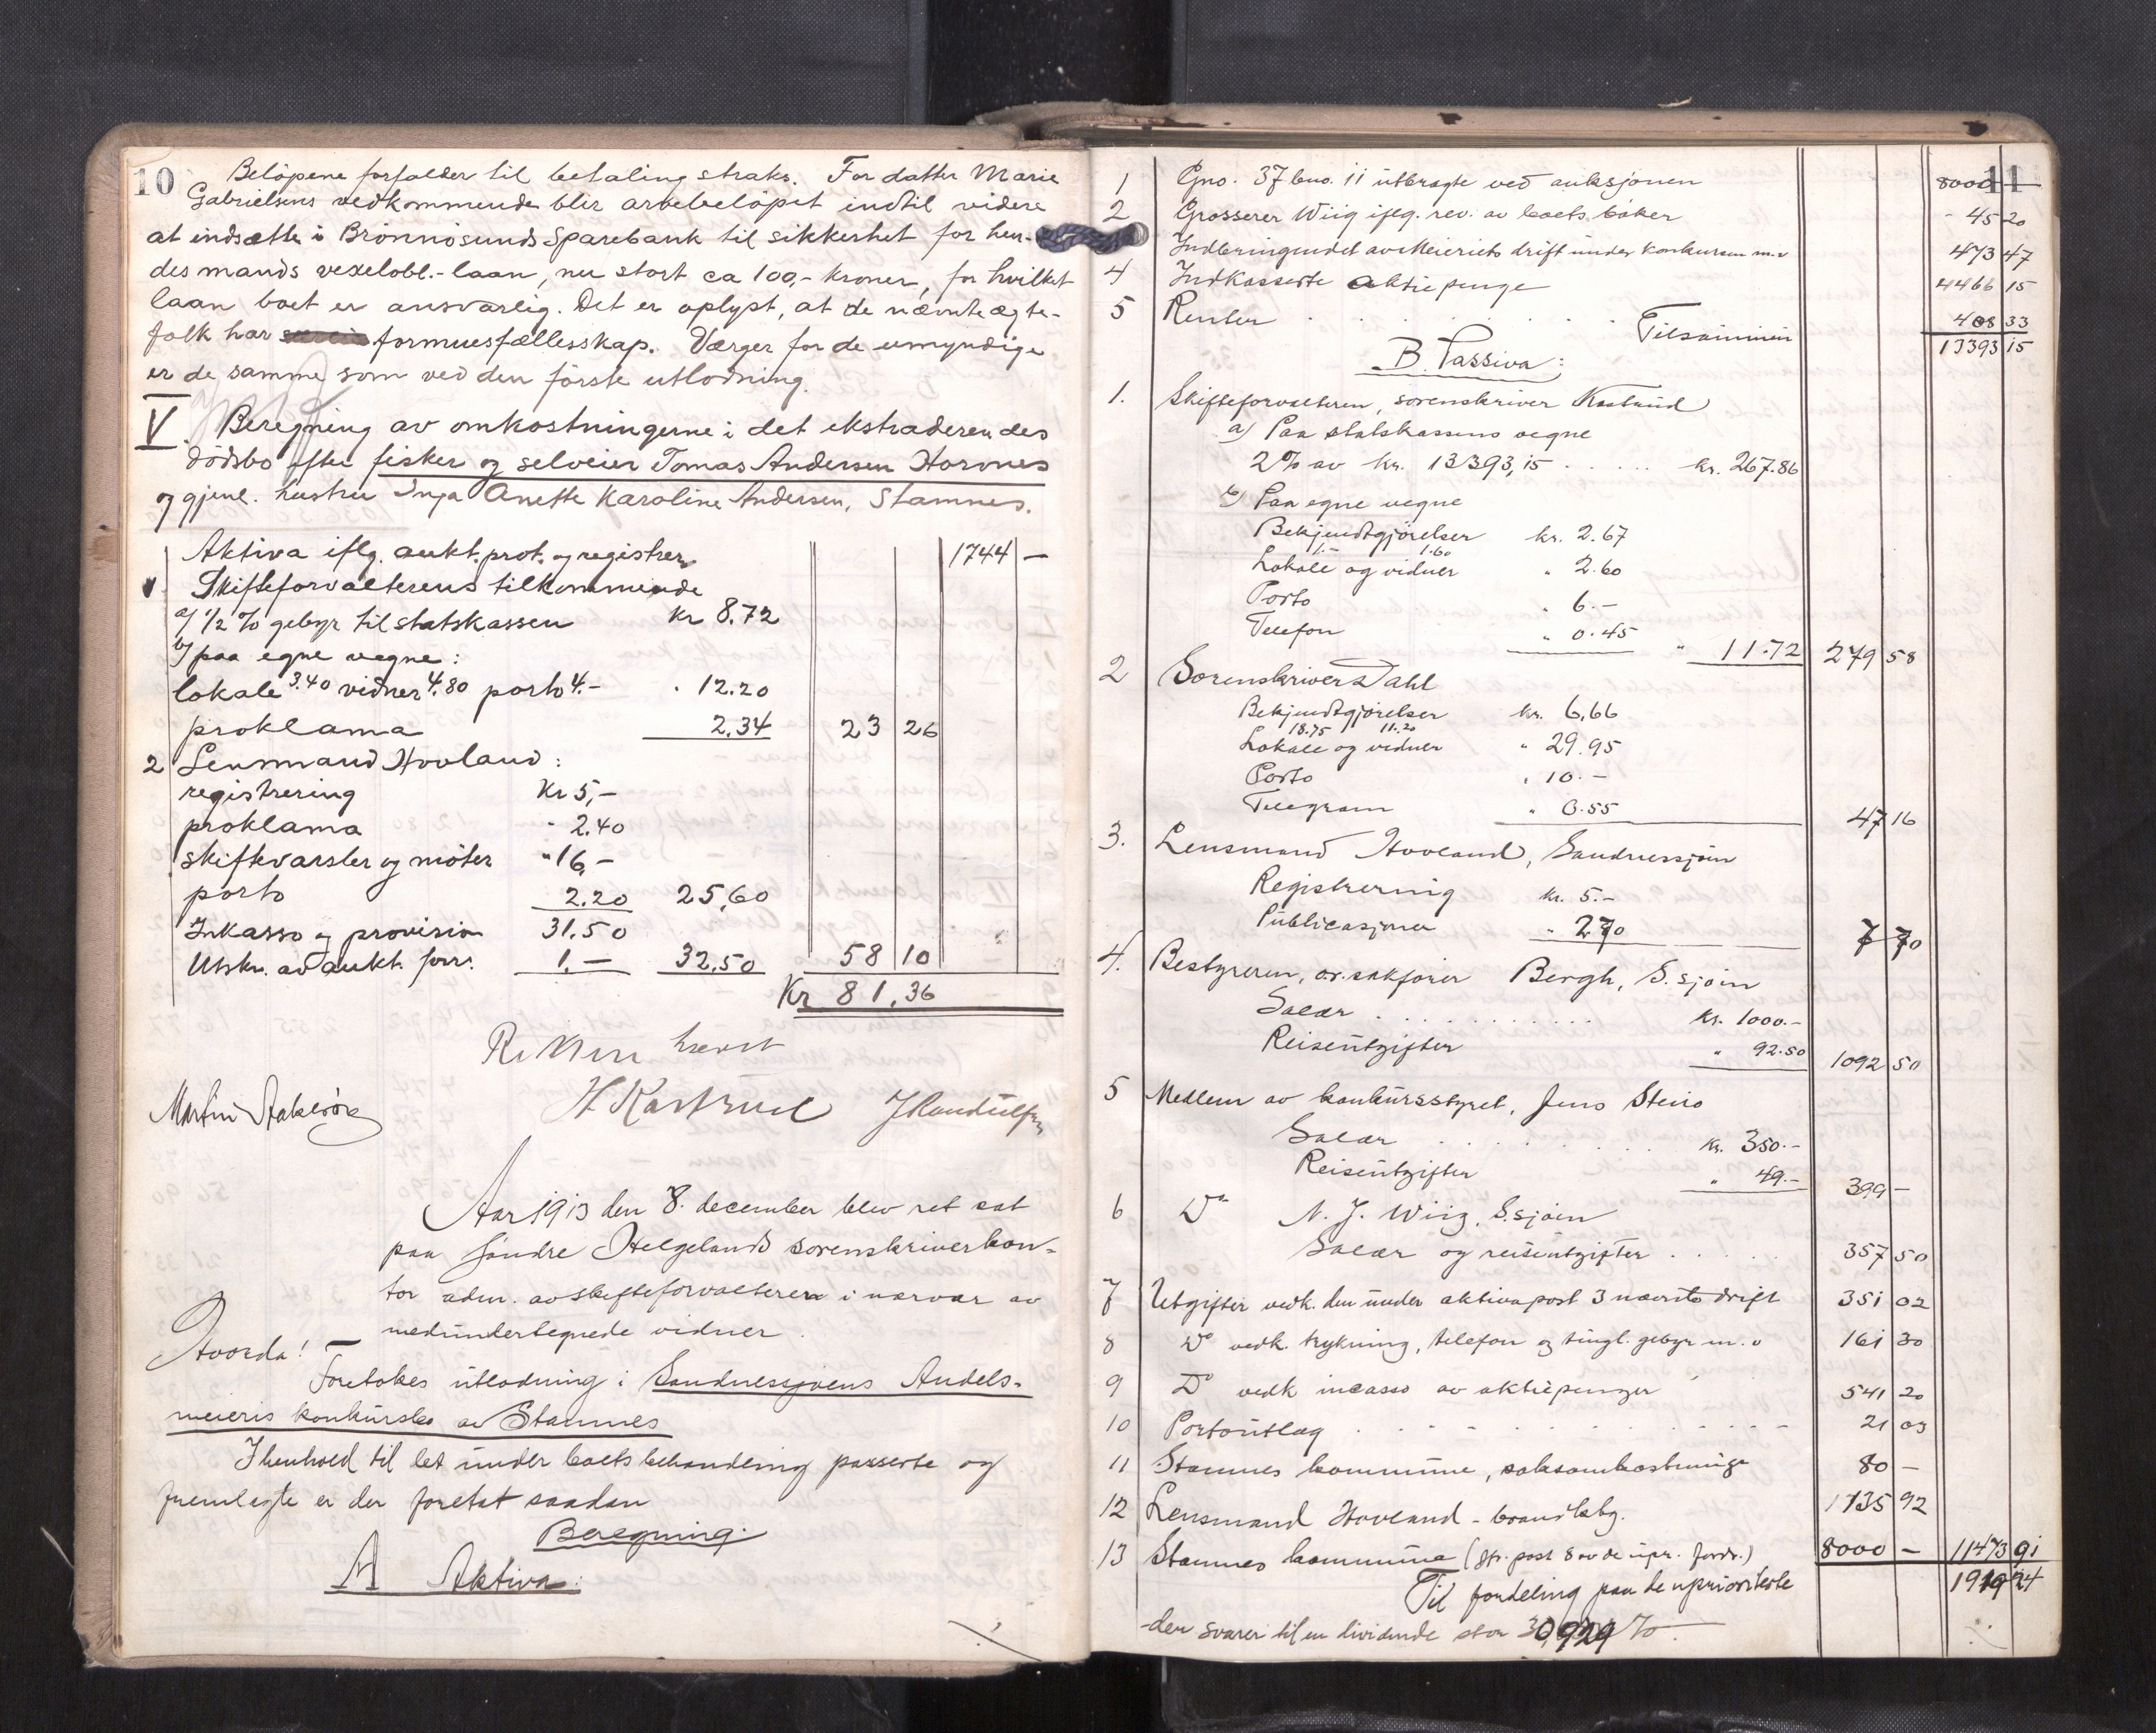 10
Beløpene forfalder til betaling straks. For datter Marie
Gabrielsens vedkommende blir arvebeløpet indtil videre
at indsætte i Brønnøsunds Sparebank til sikkerhet for hen-
des mands vexelobl.-laan, nu stort ca 100,- kroner, for hvilket
laan boet er ansvarlig. Det er oplyst, at de nævnte ægte-
folk har formuesfællesskap. Værger for de umyndige
er de samme som ved den første utlodning.
V. Beregning av omkostningerne i det ekstraderendes
dødsbo efter fisker og selveier Tomas Andersen Horvnes
og gjenl. hustru Inga Anette Karoline Andersen, Stamnes.
Aktiva iflg. aukt.prot. og registrer 1744 —
1 Skifteforvalterens tilkommende
a/ 1/2 % gebyr til statskassen Kr 8.72
b/ paa egne vegne:
lokale 3.40 vidner 4.80 porto 4.- " 12.20
proklama 2.34 23 26
2 Lensmand Hovland:
registrering Kr 5,-
proklama " 2.40
skiftevarsler og møter " 16,-
porto 2.20 25,60
Inkasso og provision 31.50
Utskr. av aukt. forr. 1.— 32,50 58 10
Kr 81,36
H Kastrud
Martin
Aar 1913 den 8. december blev ret sat
paa Søndre Helgelands sorenskriverkon-
tor adm. av skifteforvalteren i nærvær av
medundertegnede vidner.
Hvorda! —
Foretokes utlodning i Sandnessjøens Andels-
meieris konkursbo av Stamnes
I henhold til det under boets behandling passerte og
fremlagte er der foretat saadan
Beregning:
A Aktiva:
11
1 Gno. 37 bno. 11 utbragte ved auksjonen 8000 —
2 Grosserer Wiig iflg. rev. av boets bøker 45 20
Indbringendet av Meieriets drift under konkursen m.v 473 47
4 Indkasserte aktiepenge 4466 15
5 Renter 408 33
Tilsammen 13393 15
B. Passiva:
1. Skifteforvalteren, sorenskriver Kastrud
a) Paa statskassens vegne
2% av kr. 13393,15 kr. 267.86
b) Paa egne vegne
Bekjendtgjørelser kr. 2.67
1.- 1.60
Lokale og vidner " 2.60
Porto " 6.-
Telefon " 0.45 " 11.72 279 58
2 Sorenskriver Dahl
Bekjendtgjørelser kr. 6,66
18.75 11.20
Lokale og vidner " 29.95
Porto " 10.-
Telegram " 0.55 47 16
3. Lensmand Hovland, Sandnessjøen
Registrering kr. 5.-
Publicasjoner " 2.70 7 70
4. Bestyreren, o.r.sakfører Bergh, S.sjøen
Salær kr. 1000.-
Reiseutgifter " 92.50 1092 50
5 Medlem av konkursstyret, Jens Steiro
Salær kr. 350.-
Reiseutgifter " 49.- 399 —
6 Do N. J. Wiig, S.sjøen
Salær og reiseutgifter 357 50
7 Utgifter vedk. den under aktivapost 3 nævnte drift 351 02
8 Do vedk. trykning, telefon og tingl. gebyr m.v 161 30
9 Do vedk incasso av aktiepenger 541 20
10 Portoutlæg 21 03
11 Stamnes kommune, saksomkostninge 80 —
12 Lensmand Hovland - 135 92
13 Stamnes kommune (jfr. post 8 av de upr. fordr.) 8000 — 11473 91
Til fordeling paa de uprioriterte 1919 24
der svarer til en dividende stor 30,929 %